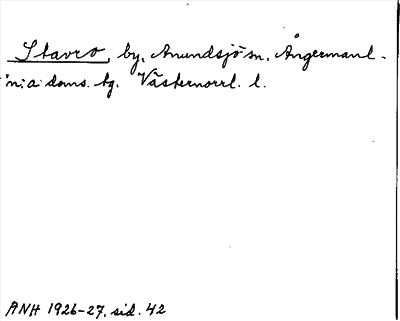 Stavro, by, Anundsjö sn. Ångermanl.
n:a doms. tg. Västernorrl. l.
ANH 1926-27, sid. 42